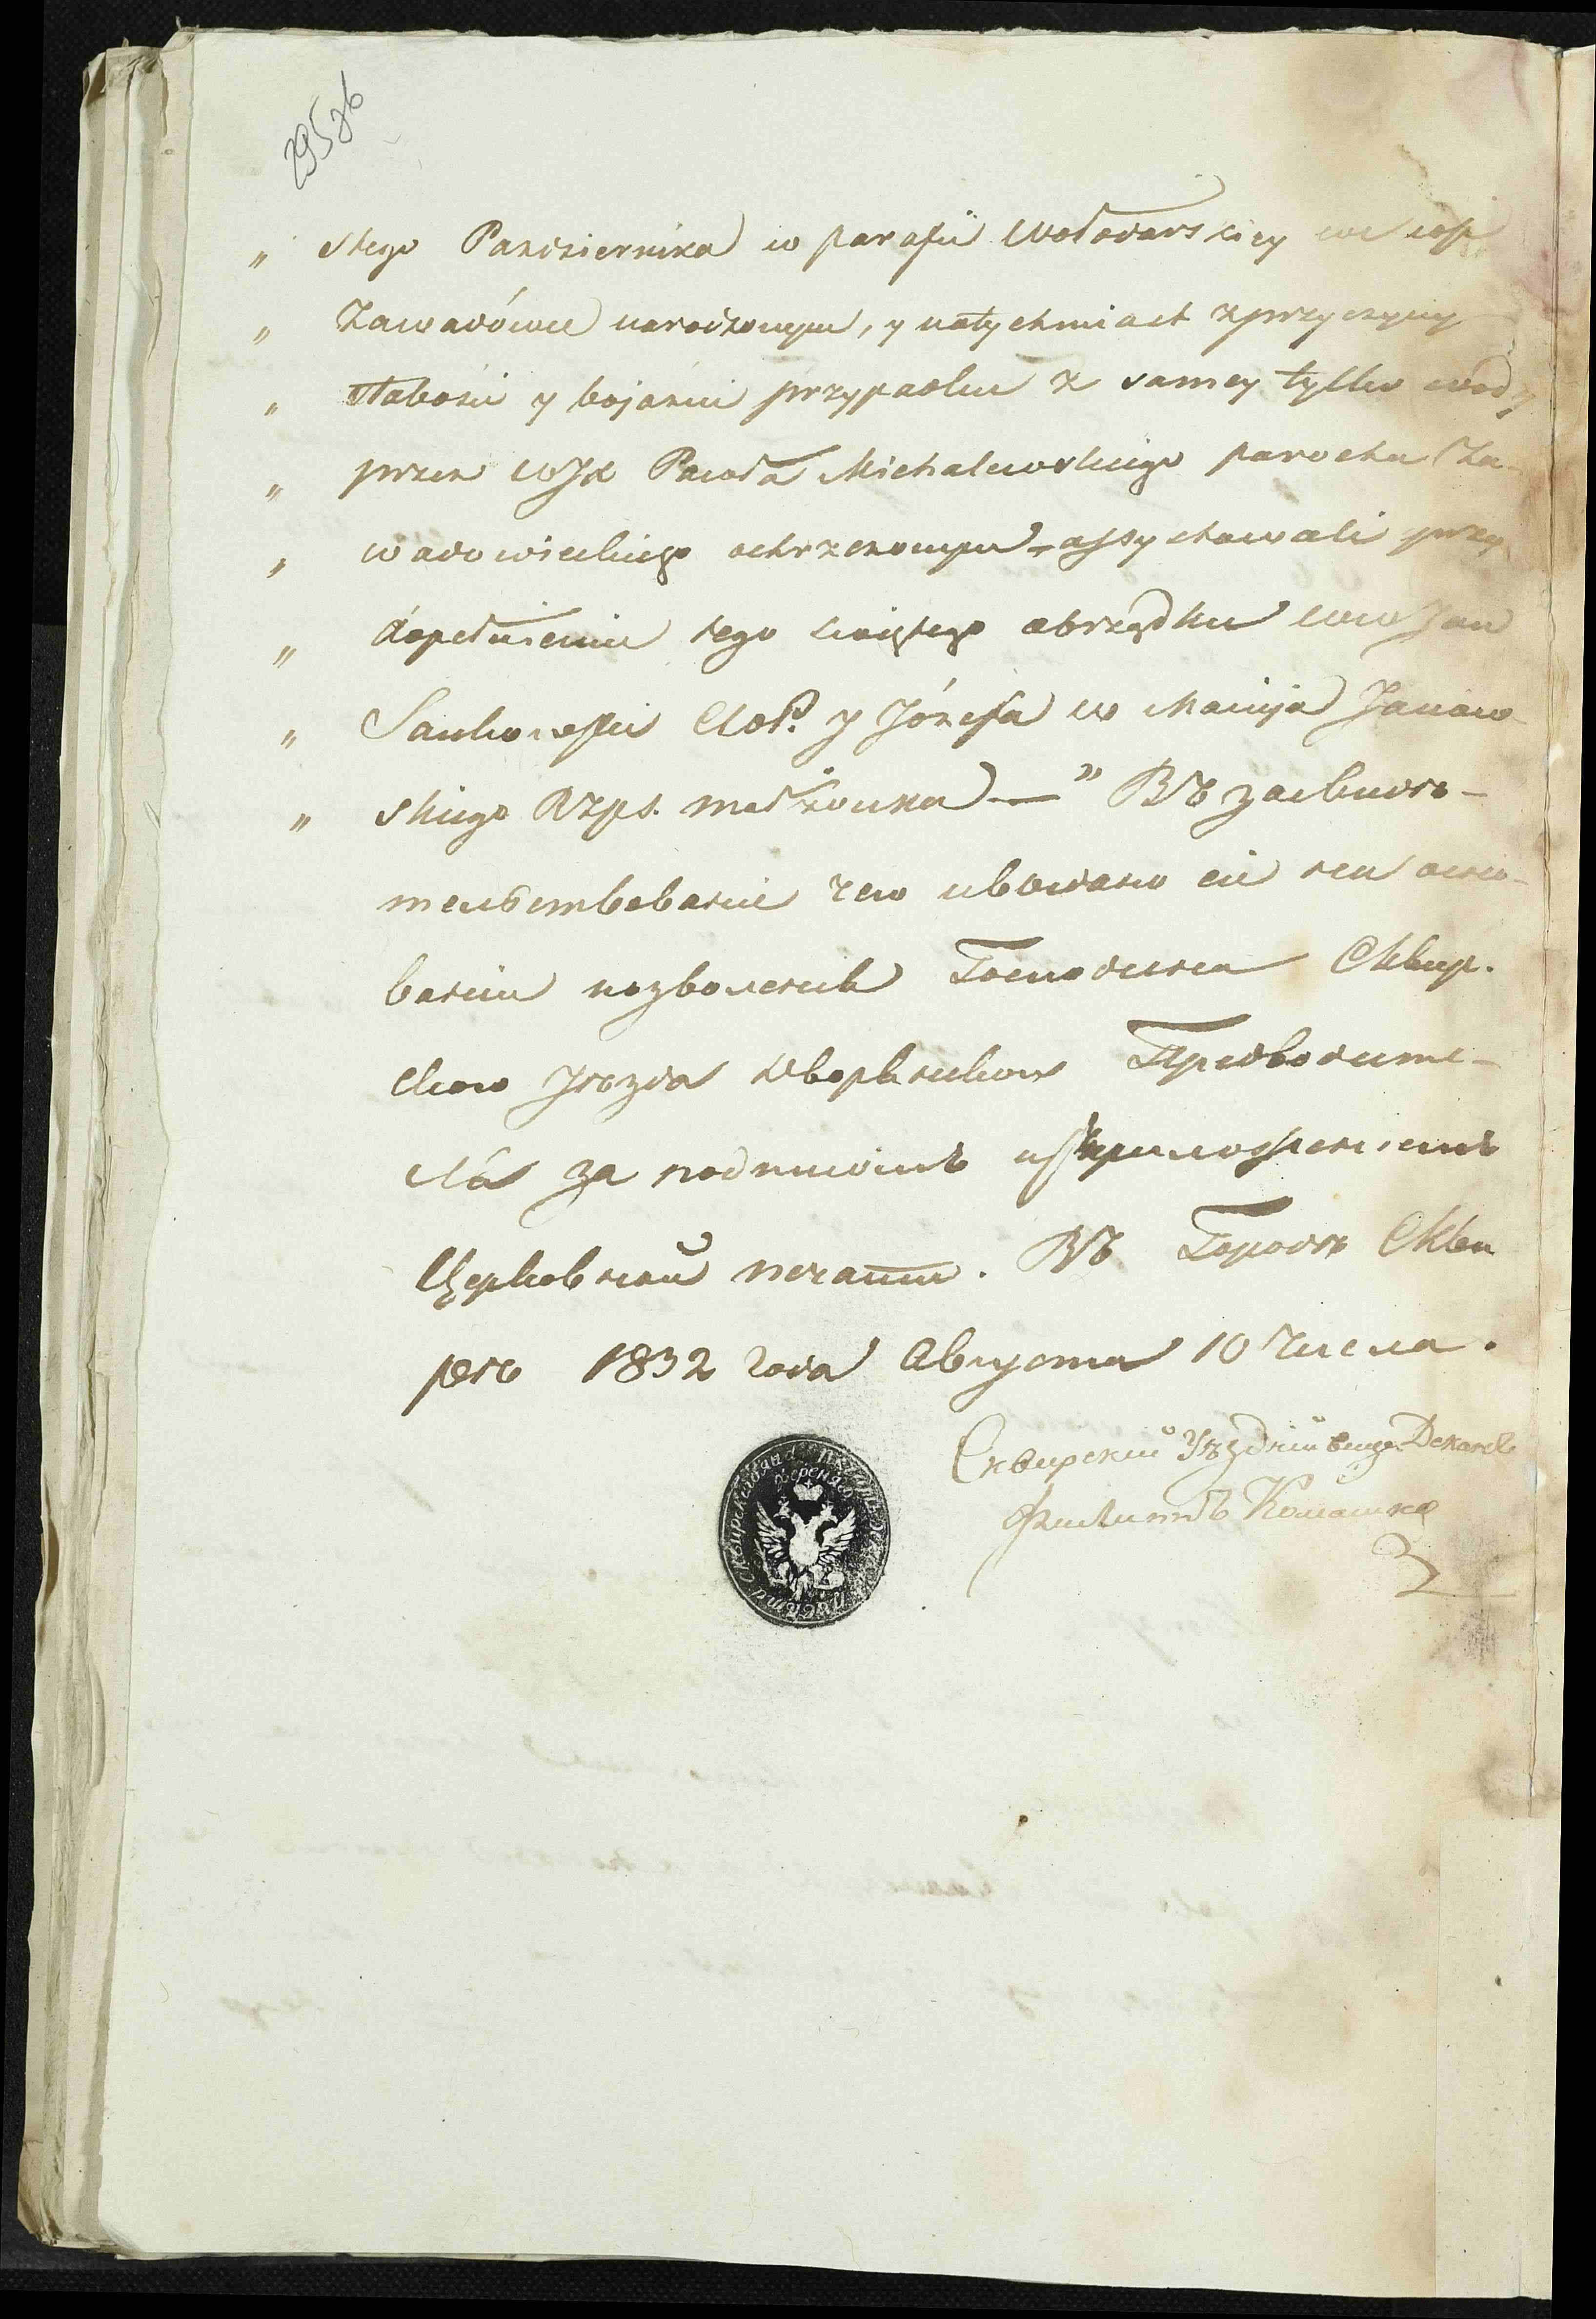 295зв
„ stego Pazdziernika w parafii Wołodarskiey we wsi
„ Zawadówce narodzonym, y natychmiast z przyczyny
„ słabości y bojaźni przypadku z samey tylko wody
„ przez WJX Pawła Michalewskiego parocha Za-
„ wadowieckiego ochrzczonym - assystowali przy
„ dopełnieniu tego świętego obrządku WW Jan
„ Sankowski y Józefa w Macieja Janow-
„ skiego małżonka — " Въ засвидѣ-
тельствованіе чего и выдано сіе на осно-
ваніи позволенія Господина Сквир-
скаго Уѣзда дворянскаго Предводите-
ля за подписомъ и приложеніемъ
Церковной печати. Въ Городѣ Сквы
рѣ 1832 года Августа 10 числа.
Сквирскій Уѣздній вице Деканъ
Филиппъ